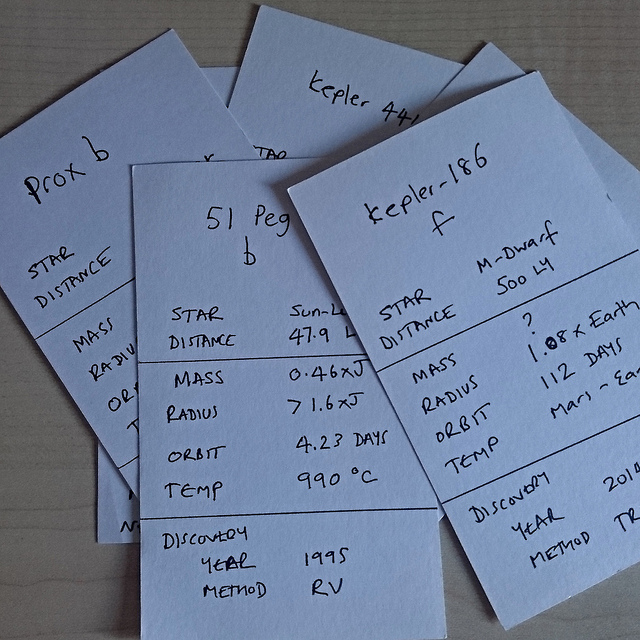 Prox b
STAR
DISTANCE
MASS
Kepler
STAR
51 Peg
b
STAR
DISTANCE 47.9
MASS 0.46xJ
RADIUS >1.6xJ
ORBIT 4.23 DAYS
TEMP 990 °C
DISCOVERY
YEAR 1995
METHOD RV
Kepler-186
f
STAR M-Dwarf
DISTANCE 500 LY
MASS ?
RADIUS 1.08 x Earth
ORBIT 112 DAYS
TEMP Mars -
DISCOVERY
YEAR 2014
METHOD TR